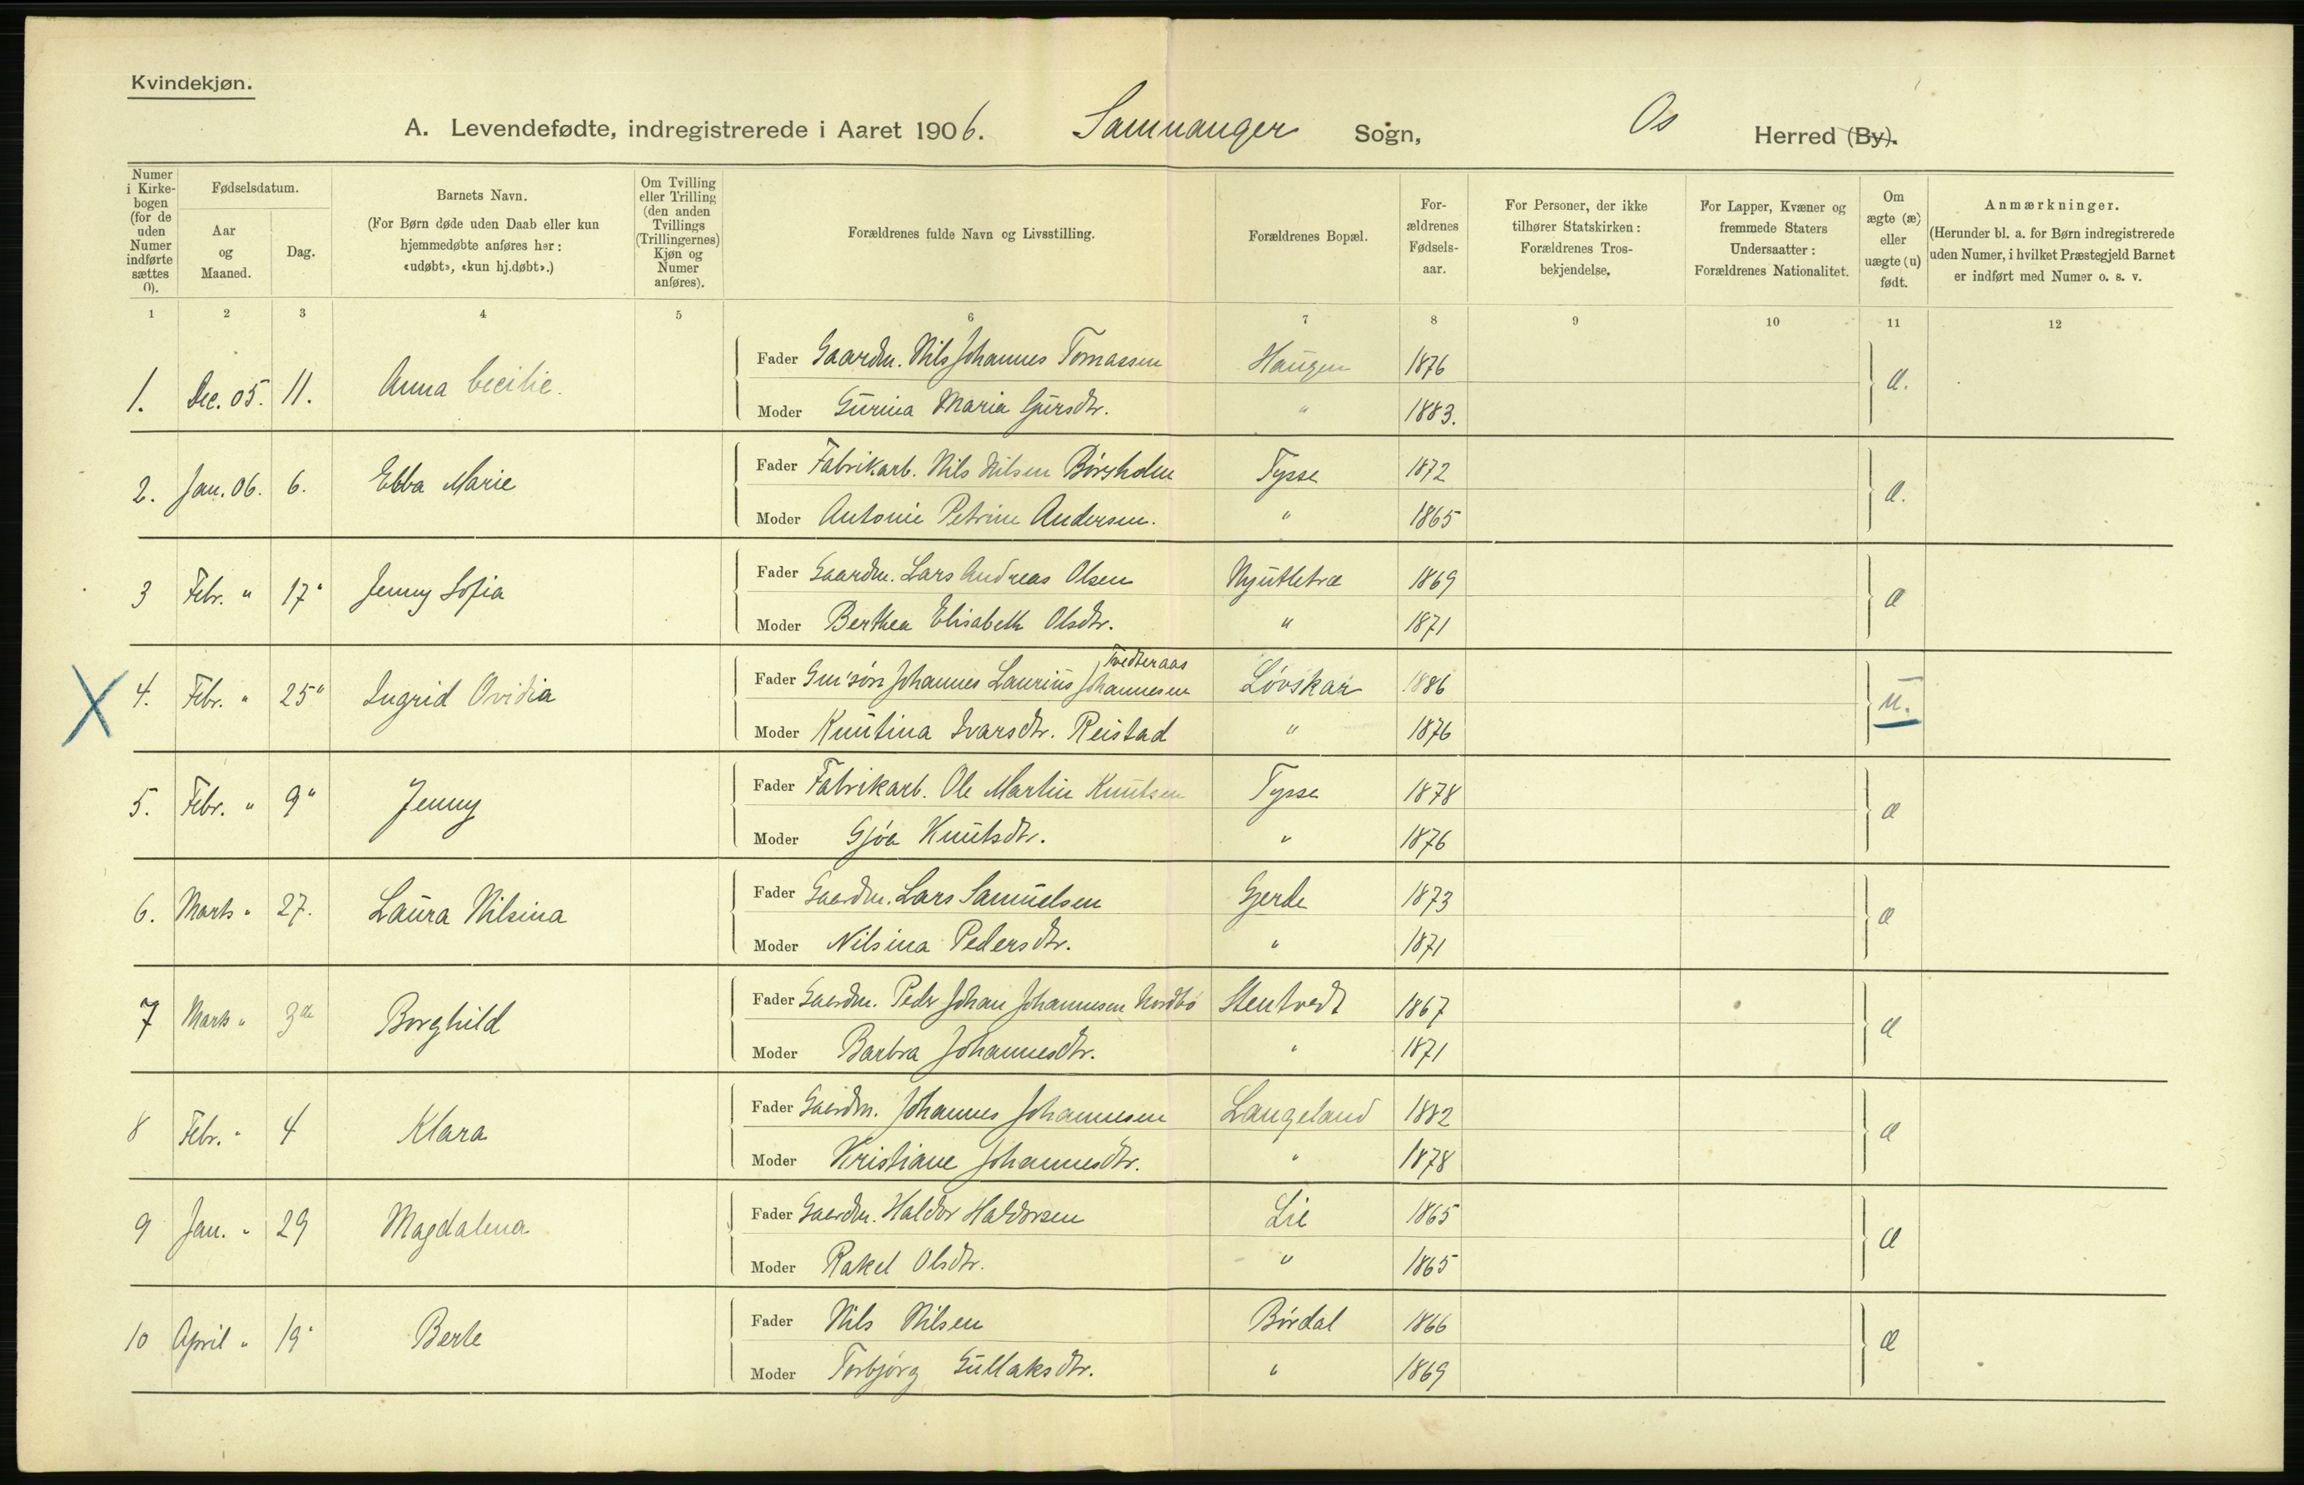 Kvindekjøn.
A. Levendefødte, indregistrerede i Aaret 1906. Samnanger Sogn, Os Herred (By).
Numer i Kirkebogen (for de uden Numer indførte sættes 0).
Fødselsdatum.
Aar og Maaned.
Dag.
Barnets Navn.
(For Børn døde uden Daab eller kun hjemmedøbte anføres her: «udøbt», «kun hj.døbt».)
Om Tvilling eller Trilling (den anden Tvillings (Trillingernes) Kjøn og Numer anføres).
Forældrenes fulde Navn og Livsstilling.
Forældrenes Bopæl.
Forældrenes Fødselsaar.
For Personer, der ikke tilhører Statskirken: Forældrenes Trosbekjendelse.
For Lapper, Kvæner og fremmede Staters Undersaatter: Forældrenes Nationalitet.
Om ægte (æ) eller uægte (u) født.
Anmærkninger.
(Herunder bl. a. for Børn indregistrerede uden Numer, i hvilket Præstegjeld Barnet er indført med Numer o. s. v.
1 2 3 4 5 6 7 8 9 10 11 12
1. Dec. 05. 11. Anna Cecilie.
Fader Gaardm. Nils Johannes Tomassen Haugen 1876 æ.
Moder Gurina Maria Gursdtr. " 1883.
2. Jan. 06. 6. Ebba Marie
Fader Fabrikarb. Nils Nilsen Børsholm Tysse 1872 æ.
Moder Antonie Petrine Andersen. " 1865
3 Febr. " 17" Jenny Sofia
Fader Gaardm. Lars Andreas Olsen 1869 æ
Moder Berthea Elisabeth Olsdtr. " 1871
X 4. Febr. " 25" Ingrid Ovidia
Tvedteraas
Fader Gm'søn Johannes Laurius Johannesen Løvskar 1886 u.
Moder Knutina Ivarsdtr. Reistad " 1876
5. Febr. " 9" Jenny
Fader Fabrikarb. Ole Martin Knutsen Tysse 1878 æ
Moder Gjøa Knutsdtr. " 1876
6. Marts " 27. Laura Nilsina
Fader Gaardm. Lars Samuelsen Gjerde 1873 æ
Moder Nilsina Pedersdtr. " 1871
7 Marts " 3 Borghild
Fader Gaardm. Peder Johan Johannesen Nordbø Stentvedt 1867 æ
Moder Barbra Johannesdtr. " 1871
8 Febr. " 4 Klara
Fader Gaardm. Johannes Johannesen Langeland 1882 æ
Moder Kristiane Johannesdtr. " 1878
9 Jan. " 29 Magdalena
Fader Gaardm. Haldor Haldorsen Lie 1865 æ
Moder Rakel Olsdtr. " 1865
10 April " 19" Berte
Fader Nils Nilsen Børdal 1866 æ
Moder Torbjørg Gullaksdtr. " 1869